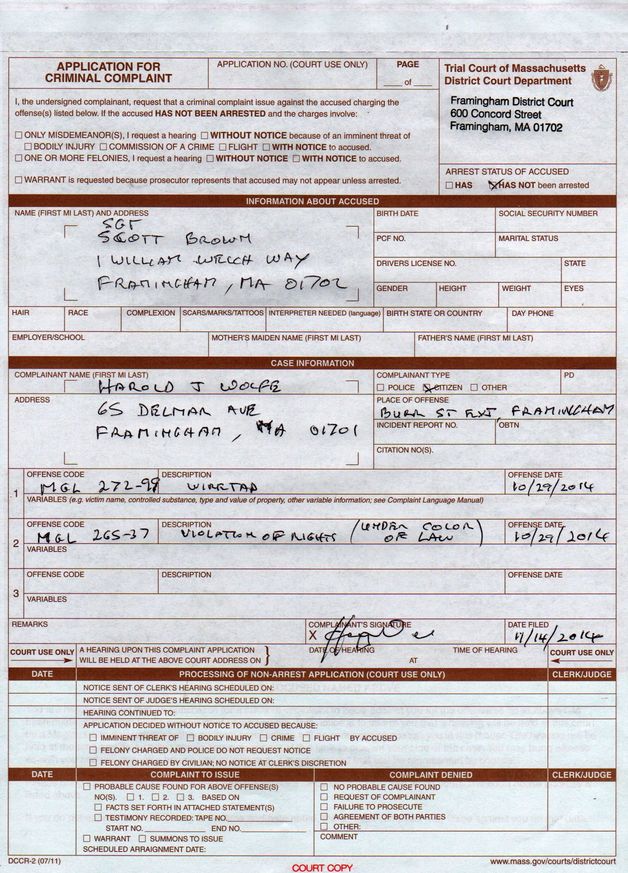 APPLICATION FOR
CRIMINAL COMPLAINT
APPLICATION NO. (COURT USE ONLY)
PAGE
____ of ____
Trial Court of Massachusetts
District Court Department
I, the undersigned complainant, request that a criminal complaint issue against the accused charging the
offense(s) listed below. If the accused HAS NOT BEEN ARRESTED and the charges involve:
☐ ONLY MISDEMEANOR(S), I request a hearing ☐ WITHOUT NOTICE because of an imminent threat of
☐ BODILY INJURY ☐ COMMISSION OF A CRIME ☐ FLIGHT ☐ WITH NOTICE to accused.
☐ ONE OR MORE FELONIES, I request a hearing ☐ WITHOUT NOTICE ☐ WITH NOTICE to accused.
☐ WARRANT is requested because prosecutor represents that accused may not appear unless arrested.
Framingham District Court
600 Concord Street
Framingham, MA 01702
ARREST STATUS OF ACCUSED
☐ HAS ☒ HAS NOT been arrested
INFORMATION ABOUT ACCUSED
NAME (FIRST MI LAST) AND ADDRESS
SGT
SCOTT BROWN
1 WILLIAM WELCH WAY
FRAMINGHAM, MA 01702
BIRTH DATE
SOCIAL SECURITY NUMBER
PCF NO.
MARITAL STATUS
DRIVERS LICENSE NO.
STATE
GENDER
HEIGHT
WEIGHT
EYES
HAIR
RACE
COMPLEXION
SCARS/MARKS/TATTOOS
INTERPRETER NEEDED (language)
BIRTH STATE OR COUNTRY
DAY PHONE
EMPLOYER/SCHOOL
MOTHER'S MAIDEN NAME (FIRST MI LAST)
FATHER'S NAME (FIRST MI LAST)
CASE INFORMATION
COMPLAINANT NAME (FIRST MI LAST)
HAROLD J WOLFE
ADDRESS
65 DELMAR AVE
FRAMINGHAM, MA 01701
COMPLAINANT TYPE
☐ POLICE ☒ CITIZEN ☐ OTHER
PD
PLACE OF OFFENSE
BURR ST EXT, FRAMINGHAM
INCIDENT REPORT NO.
OBTN
CITATION NO(S).
1
OFFENSE CODE
MGL 272-99
DESCRIPTION
WIRETAP
OFFENSE DATE
10/29/2014
VARIABLES (e.g. victim name, controlled substance, type and value of property, other variable information; see Complaint Language Manual)
2
OFFENSE CODE
MGL 265-37
DESCRIPTION
VIOLATION OF RIGHTS (UNDER COLOR OF LAW)
OFFENSE DATE
10/29/2014
VARIABLES
3
OFFENSE CODE
DESCRIPTION
OFFENSE DATE
VARIABLES
REMARKS
COMPLAINANT'S SIGNATURE
X
DATE FILED
11/14/2014
COURT USE ONLY
A HEARING UPON THIS COMPLAINT APPLICATION
WILL BE HELD AT THE ABOVE COURT ADDRESS ON
DATE OF HEARING
AT
TIME OF HEARING
COURT USE ONLY
DATE
PROCESSING OF NON-ARREST APPLICATION (COURT USE ONLY)
CLERK/JUDGE
NOTICE SENT OF CLERK'S HEARING SCHEDULED ON:
NOTICE SENT OF JUDGE'S HEARING SCHEDULED ON:
HEARING CONTINUED TO:
APPLICATION DECIDED WITHOUT NOTICE TO ACCUSED BECAUSE:
☐ IMMINENT THREAT OF ☐ BODILY INJURY ☐ CRIME ☐ FLIGHT BY ACCUSED
☐ FELONY CHARGED AND POLICE DO NOT REQUEST NOTICE
☐ FELONY CHARGED BY CIVILIAN; NO NOTICE AT CLERK'S DISCRETION
DATE
COMPLAINT TO ISSUE
COMPLAINT DENIED
CLERK/JUDGE
☐ PROBABLE CAUSE FOUND FOR ABOVE OFFENSE(S)
NO(S). ☐ 1. ☐ 2. ☐ 3. BASED ON
☐ FACTS SET FORTH IN ATTACHED STATEMENT(S)
☐ TESTIMONY RECORDED: TAPE NO.
START NO. END NO.
☐ WARRANT ☐ SUMMONS TO ISSUE
SCHEDULED ARRAIGNMENT DATE:
☐ NO PROBABLE CAUSE FOUND
☐ REQUEST OF COMPLAINANT
☐ FAILURE TO PROSECUTE
☐ AGREEMENT OF BOTH PARTIES
☐ OTHER:
COMMENT
DCCR-2 (07/11)
COURT COPY
www.mass.gov/courts/districtcourt